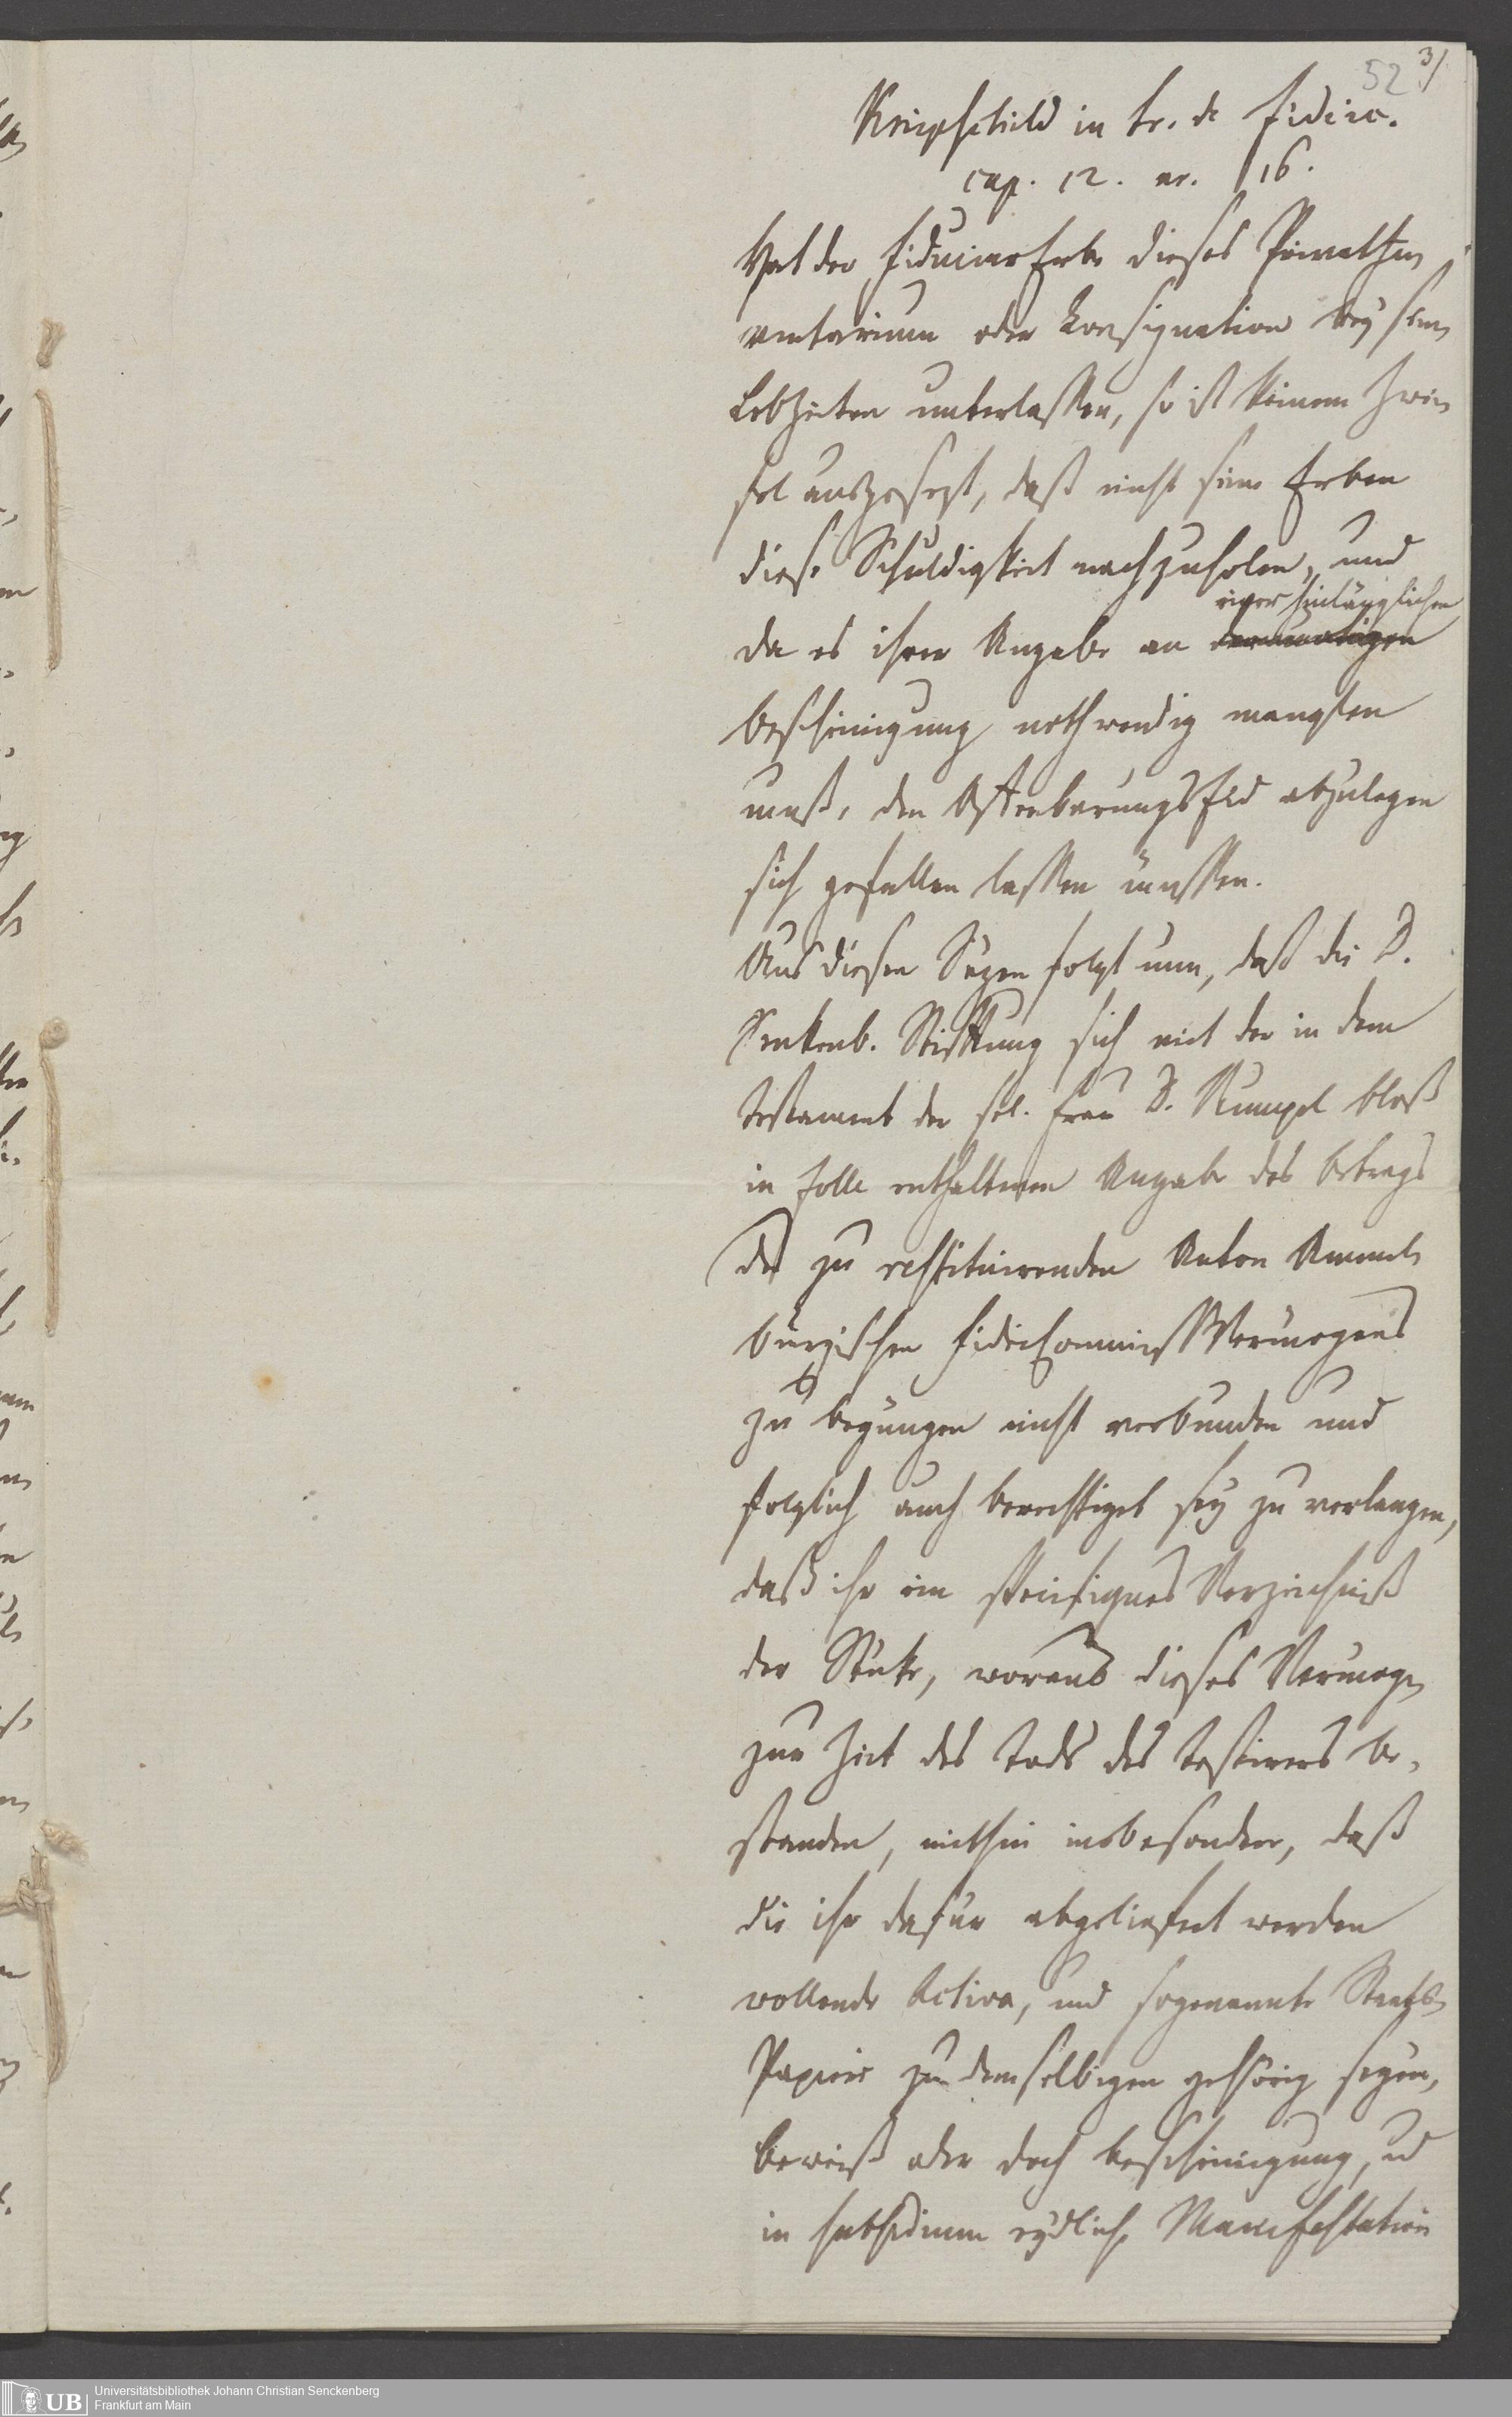 52 3/
Knipschild in tr. de fideic.
cap. 12. nr. 16.
Hat der Fiduciar Erbe dieses Privat In
ventarium oder Consignation bey seinen
Lebzeiten unterlaßen, so ist keinem Zwei
fel ausgesezt, daß nicht seine Erben
diese Schuldigkeit nachzuholen, und
einer hinlänglichen
da es ihrer Angabe an
Bescheinigung nothwendig manglen
muß, den Offenbarungs Eid abzulegen
sich gefallen laßen müßen.
Aus diesen Säzen folgt nun, daß die D.
Senkenb. Stiftung sich mit der in dem
Testament der sel. Frau D. Rumpel bloß
in folle enthaltenen Angabe des Betrags
des zu restituirenden Anton Amend
burgischen FideiCommiß Vermögens
zu begnügen nicht verbunden und
folglich auch berechtiget sey zu verlangen,
daß ihr ein Verzeichniß
der Stüke, woraus dieses Vermögen
zur Zeit des Tods des Testirers be-
standen, mithin insbesondere, daß
die ihr dafür abgeliefert werden
wollende Activa, und sogenannte Staats
Papiere zu demselbigen gehörig seyen,
Beweiß oder doch Bescheinigung, und
in subsidium eydliche Manifestation
Universitätsbibliothek Johann Christian Senckenberg
Frankfurt am Main
UB